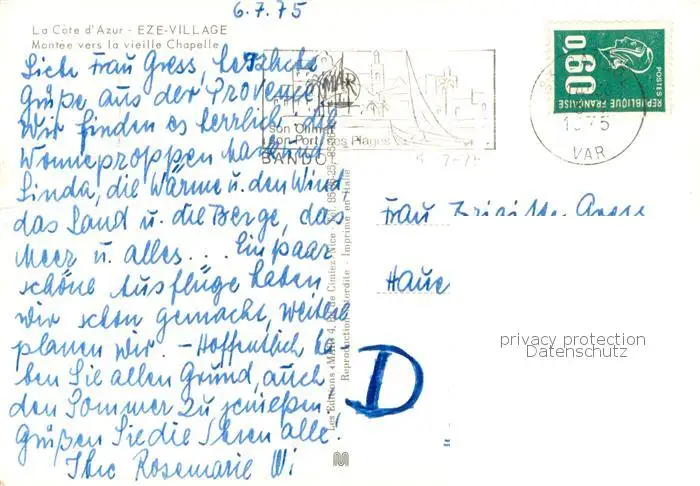 6.7.75
La Côte d'Azur - EZE-VILLAGE
Montée vers la vieille Chapelle
Liebe Frau Gress, herzliche
Grüße aus der Provence.
Wir finden es herrlich, die
Wonneproppen und
Linda, die Wärme u. den Wind,
das Land u. die Berge, das
Meer u. alles... Ein paar
schöne Ausflüge haben
wir schon gemacht, weitere
planen wir. - Hoffentlich ha-
ben Sie allen Grund, auch
den Sommer zu genießen.
Grüßen Sie die Ihren alle!
Ihre Rosemarie Wi
son Climat
son Port ses Plages
BANDOL
7-75
1975
VAR
0,60
POSTES
REPUBLIQUE FRANÇAISE
Les Editions «MAR» 4, de Cimiez, Nice
Reproduction interdite - Imprimé en Italie
Frau Brigitte Gress
Haue
D
privacy protection
Datenschutz